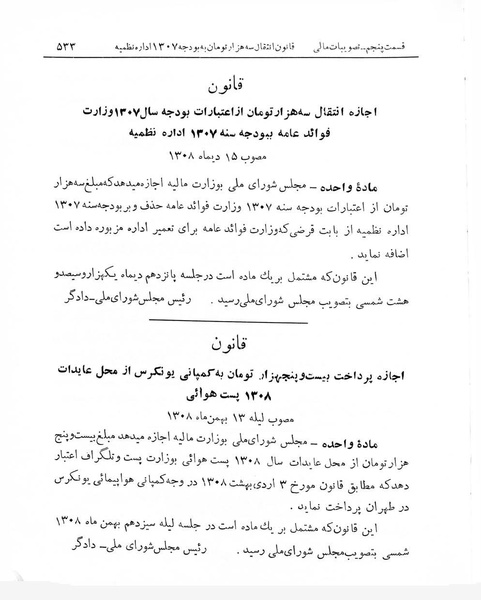 قسمت پنجم ـ تصویبات مالی قانون انتقال سه هزار تومان به بودجه ۱۳۰۷ اداره نظمیه ۵۳۳
قانون
اجازه انتقال سه هزار تومان از اعتبارات بودجه سال ۱۳۰۷ وزارت
فوائد عامه ببودجه سنه ۱۳۰۷ اداره نظمیه
مصوب ۱۵ دیماه ۱۳۰۸
مادهٔ واحده ـ مجلس شورای ملی بوزارت مالیه اجازه میدهد که مبلغ سه هزار
تومان از اعتبارات بودجه سنه ۱۳۰۷ وزارت فوائد عامه حذف و بر بودجه سنه ۱۳۰۷
اداره نظمیه از بابت قرضی که وزارت فوائد عامه برای تعمیر اداره مزبوره داده است
اضافه نماید .
این قانون که مشتمل بر یك ماده است در جلسه پانزدهم دیماه یکهزار و سیصد و
هشت شمسی بتصویب مجلس شورای ملی رسید . رئیس مجلس شورای ملی ـ دادگر
قانون
اجازه پرداخت بیست و پنجهزار تومان به کمپانی یونکرس از محل عایدات
۱۳۰۸ پست هوائی
مصوب لیله ۱۳ بهمن ماه ۱۳۰۸
مادهٔ واحده ـ مجلس شورای ملی بوزارت مالیه اجازه میدهد مبلغ بیست و پنج
هزار تومان از محل عایدات سال ۱۳۰۸ پست هوائی بوزارت پست و تلگراف اعتبار
دهد که مطابق قانون مورخ ۳ اردی بهشت ۱۳۰۸ در وجه کمپانی هواپیمائی یونکرس
در طهران پرداخت نماید .
این قانون که مشتمل بر یك ماده است در جلسه لیله سیزدهم بهمن ماه ۱۳۰۸
شمسی بتصویب مجلس شورای ملی رسید . رئیس مجلس شورای ملی ـ دادگر